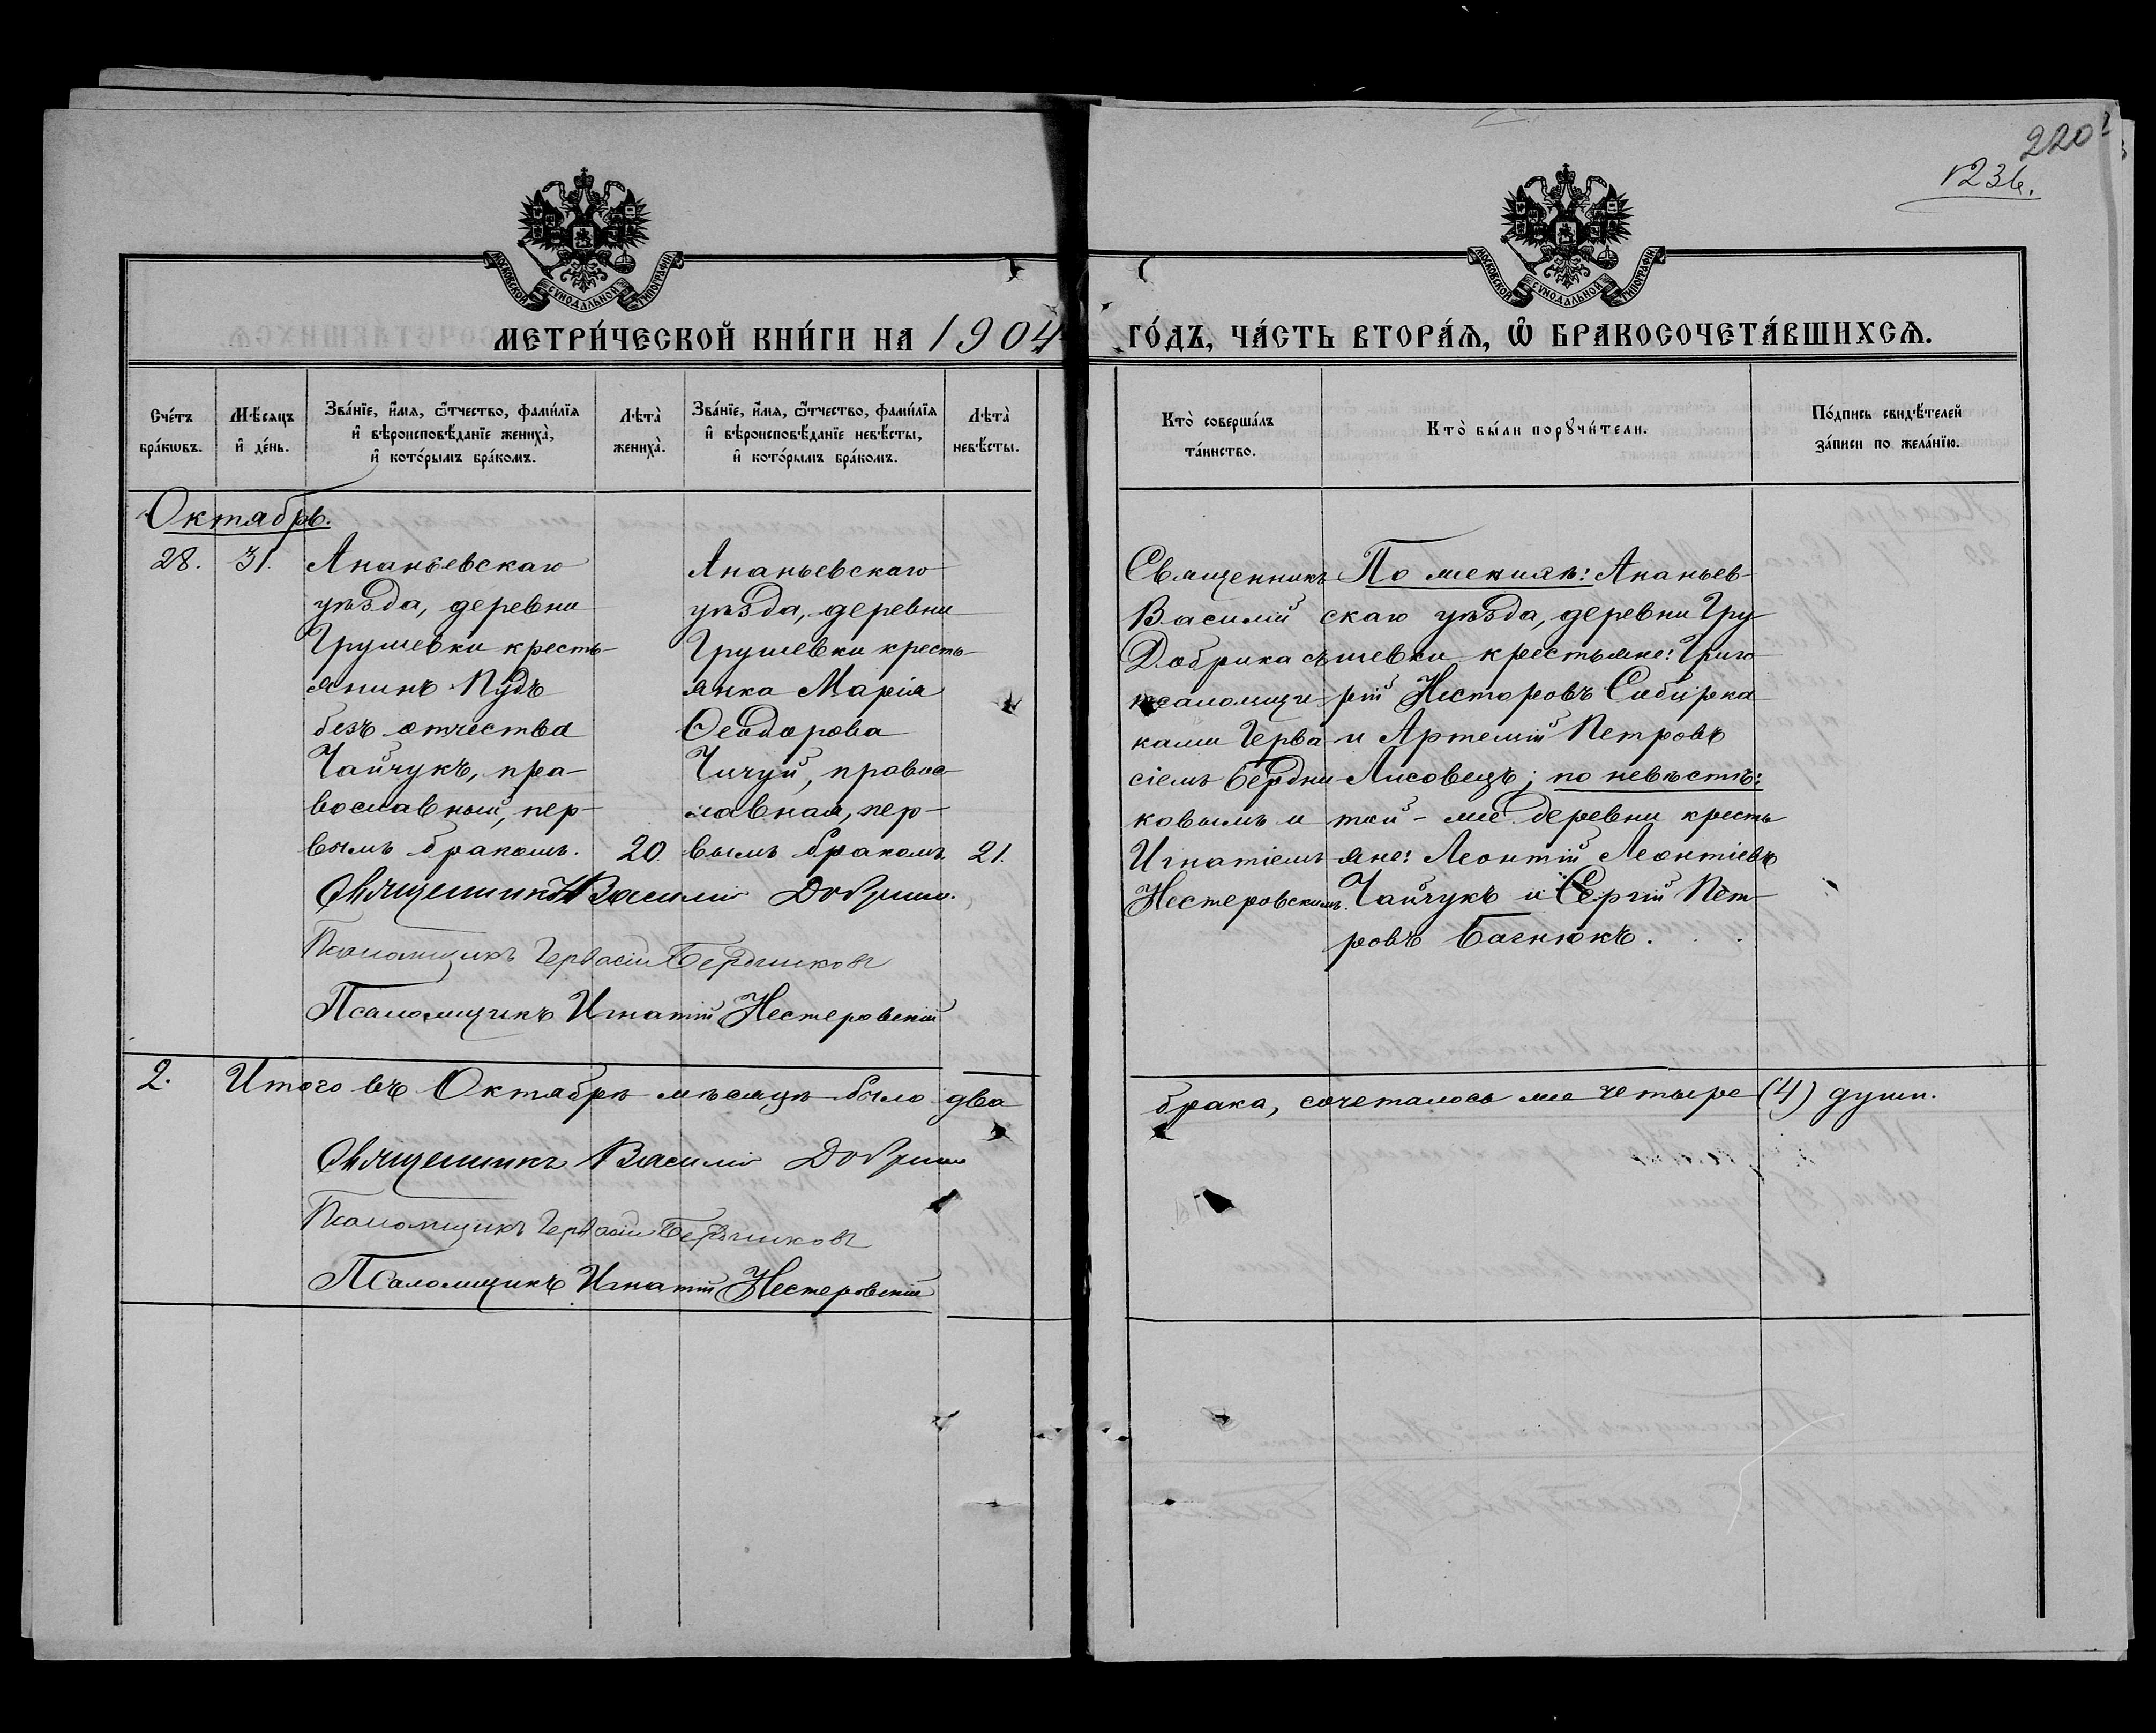 220
1236.
МОСКОВСКОЙ СѴНОДАЛЬНОЙ ТИПОГРАФІИ
МОСКОВСКОЙ СѴНОДАЛЬНОЙ ТИПОГРАФІИ
МЕТРИ́ЧЕСКОЙ КНИ́ГИ НА 1904 ГО́ДЪ, ЧА́СТЬ ВТОРА́Ѧ, Ѽ БРАКОСОЧЕТА́ВШИХСѦ.
Сче́тъ
бра́кѡвъ.
Мѣ́сяцъ
и҆ де́нь.
Зва́нїе, и҆́мя, ѻ҆́тчество, фами́лїя
и҆ вѣроисповѣ́данїе жениха̀,
и҆ кото́рымъ бра́комъ.
Лѣта̀
жениха̀.
Зва́нїе, и҆́мя, ѻ҆́тчество, фами́лїя
и҆ вѣроисповѣ́данїе невѣ́сты,
и҆ кото́рымъ бра́комъ.
Лѣта̀
невѣ́сты.
Кто̀ соверша́лъ
та́инство.
Кто̀ бы́ли порꙋчи́тели.
По́дпись свидѣ́телей
за́писи по жела́нїю.
Октябрь.
28.
31.
Ананьевскаго
уѣзда, деревни
Грушевки кресть-
янинъ Пудъ
безъ отчества
Чайчукъ, пра-
вославный, пер-
вымъ бракомъ.
20.
Ананьевскаго
уѣзда, деревни
Грушевки кресть-
янка Марія
Ѳеодорова
Чичуй, правос-
лавная, пер-
вымъ бракомъ.
21.
Священникъ
Василій
Добрика съ
псаломщи-
ками Герва-
сіемъ Бердни-
ковымъ и
Игнатіемъ
Нестеровскимъ.
По женихѣ: Ананьев-
скаго уѣзда, деревни Гру-
шевки крестьяне: Григо-
рій Несторовъ Сибирка
и Артемій Петровъ
Лисовецъ; по невѣстѣ:
той-же деревни кресть-
яне: Леонтій Леонтіевъ
Чайчукъ и Сергій Пет-
ровъ Багнюкъ.
Священникъ Василій Добрика.
Псаломщикъ Гервасій Бердниковъ
Псаломщикъ Игнатій Нестеровскій
2.
Итого въ Октябрѣ мѣсяцѣ было два брака, сочеталось же четыре (4) души.
Священникъ Василій Добрика
Псаломщикъ Гервасій Бердниковъ
Псаломщикъ Игнатій Нестеровскій